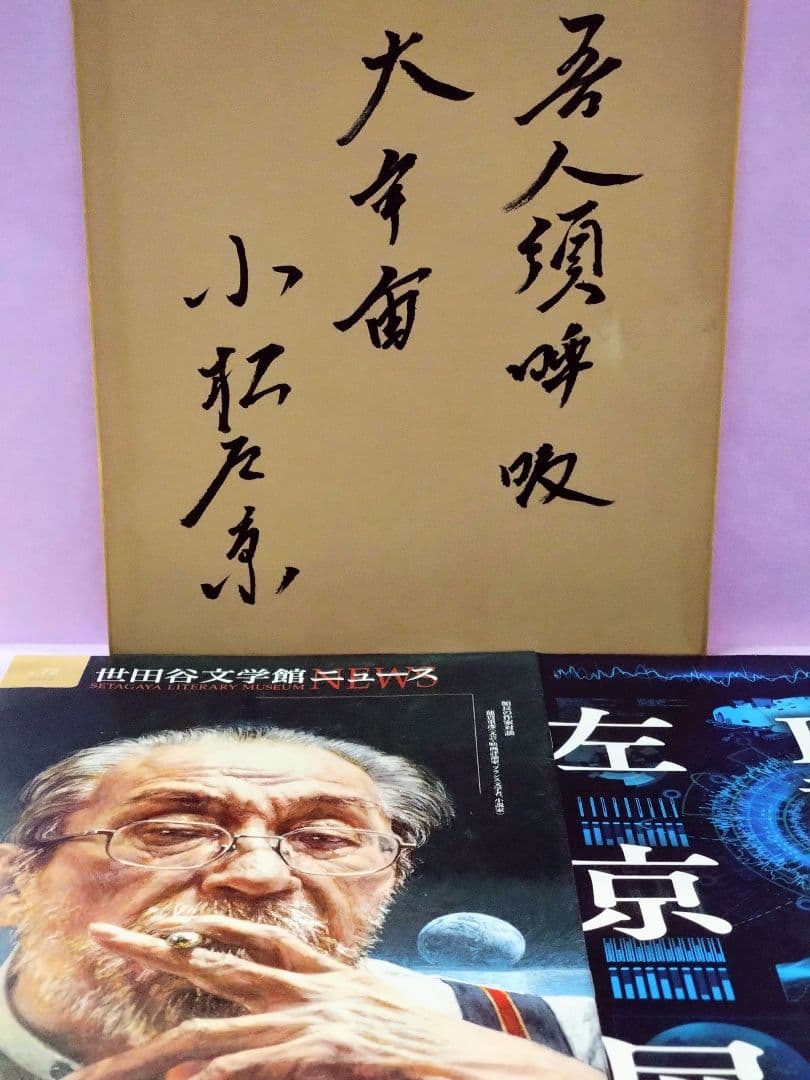 吾人須呼吸
大宇宙
小松左京
世田谷文学館ニュース
SETAGAYA LITERARY MUSEUM NEWS
館長の作家対談
左京